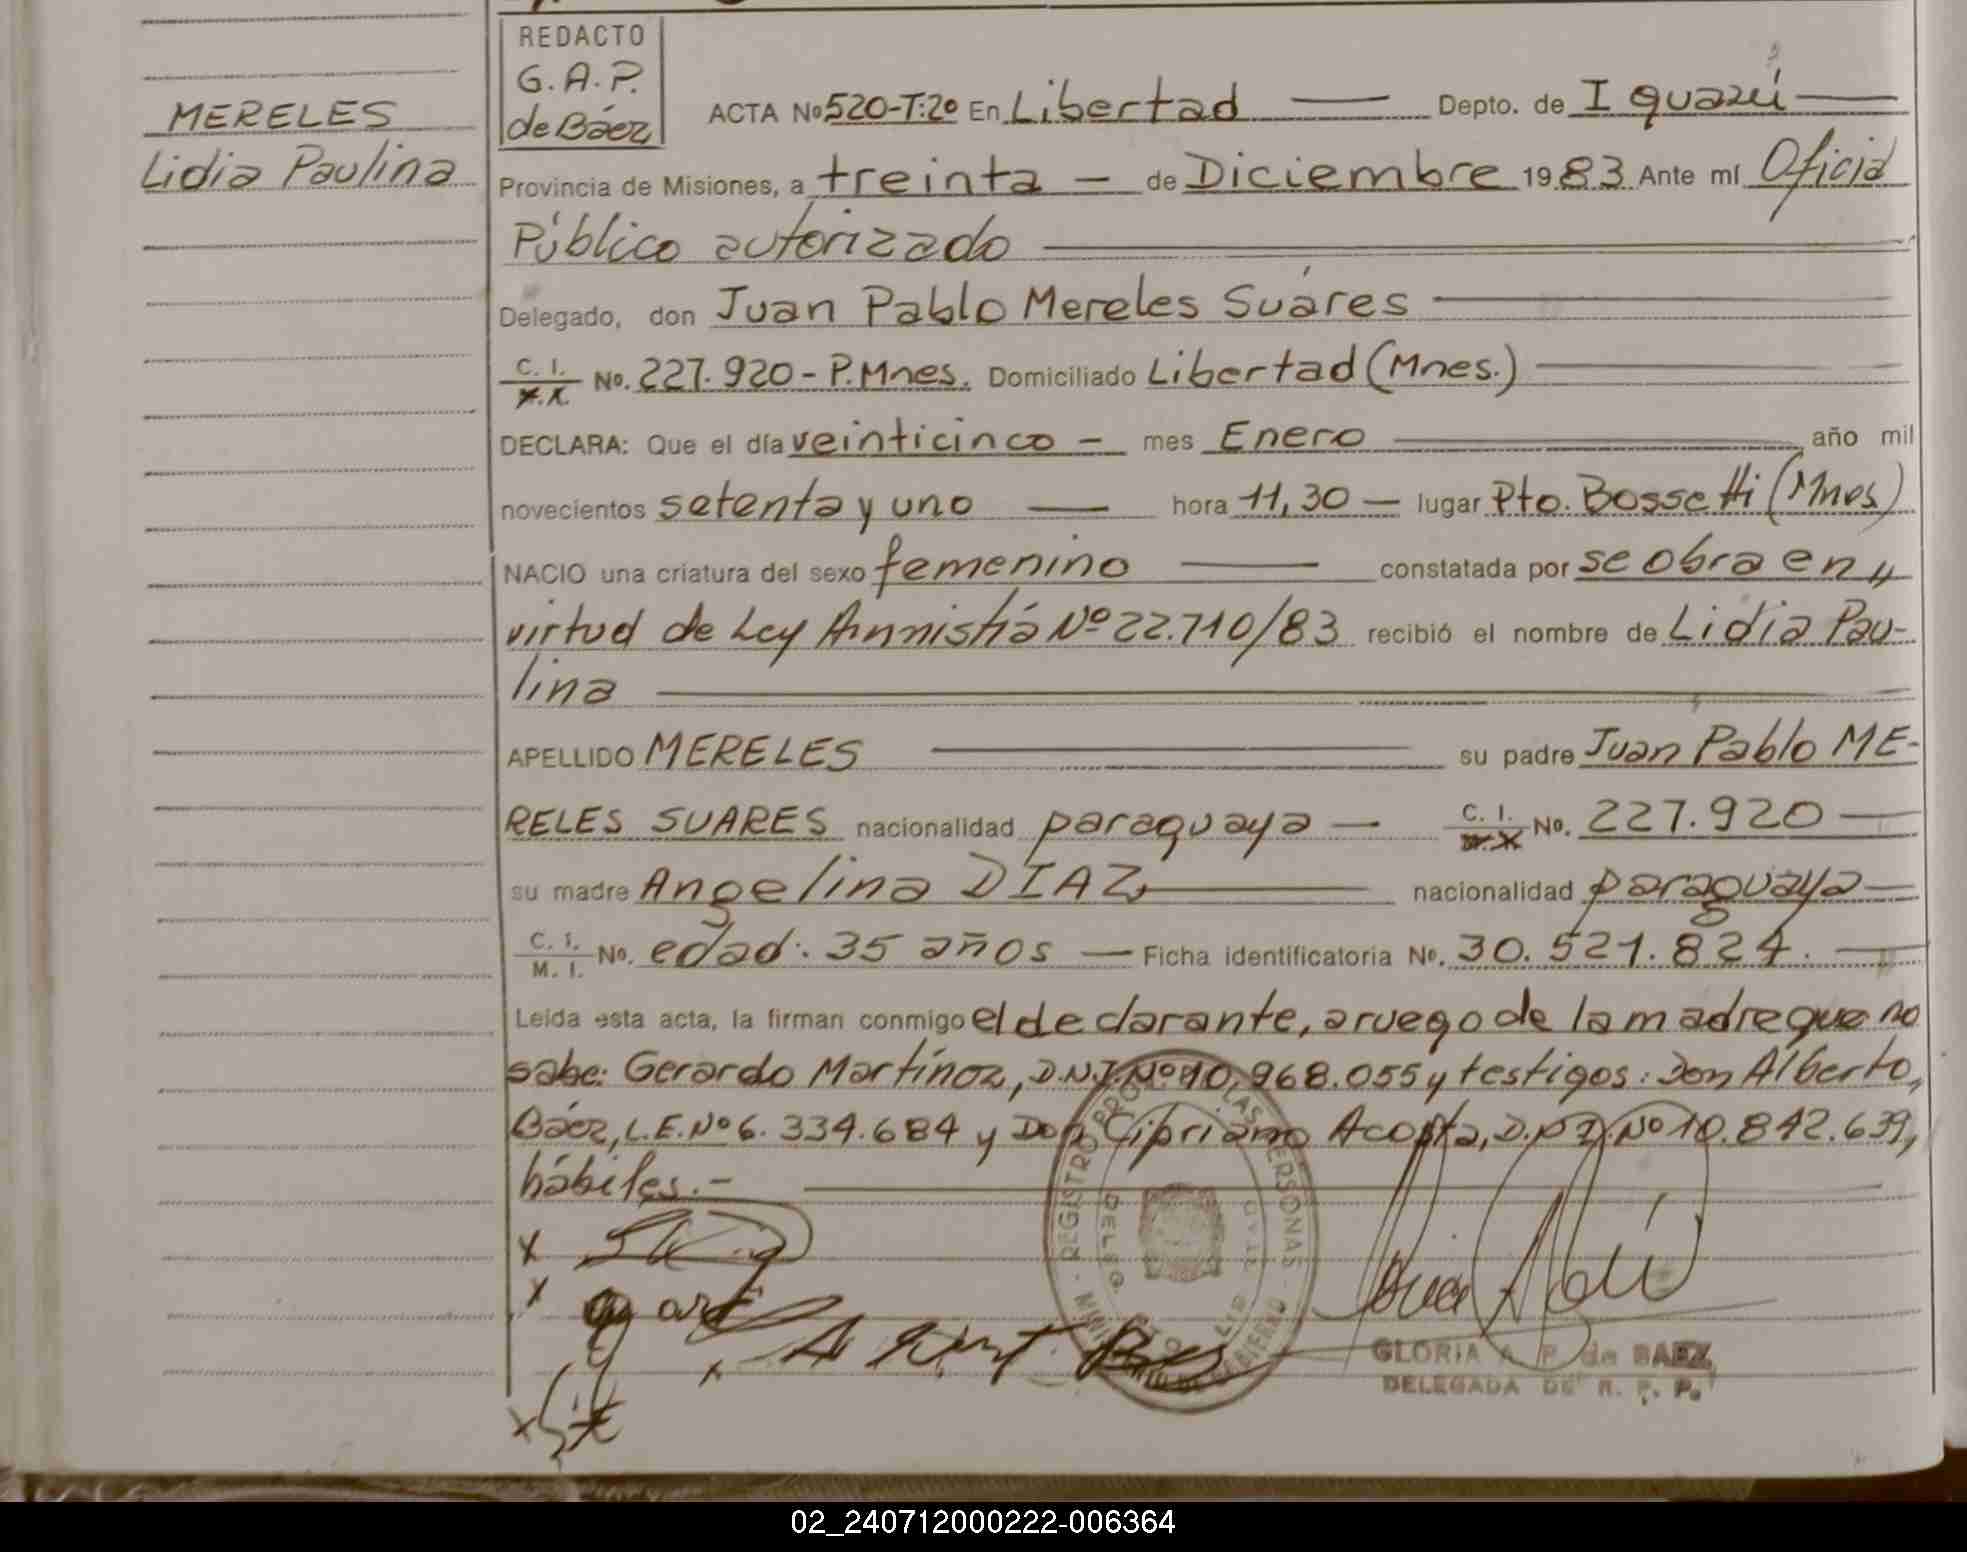 MERELES
Lidia Paulina
REDACTO
G.A.P.
de Báez
ACTA No 520-T:2º En Libertad Depto. de Iguazú
Provincia de Misiones, a treinta - de Diciembre 1983 Ante mí Oficial
Público autorizado
Delegado, don Juan Pablo Mereles Suáres
C. I. No. 227.920 - P.Mnes. Domiciliado Libertad (Mnes.)
DECLARA: Que el día veinticinco - mes Enero año mil
novecientos setenta y uno hora 11,30 - lugar Pto. Bossetti (Mnes)
NACIO una criatura del sexo femenino constatada por se obra en "
virtud de Ley Amnistiá Nº 22.710/83 recibió el nombre de Lidia Pau-
lina
APELLIDO MERELES su padre Juan Pablo ME-
RELES SUARES nacionalidad paraguaya - C. I. No. 227.920
su madre Angelina DIAZ nacionalidad paraguaya
C. I. M. I. No. edad: 35 años - Ficha identificatoria No. 30.521.824.
Leída esta acta, la firman conmigo el declarante, a ruego de la madre que no
sabe: Gerardo Martínez, D.N.I. Nº 10.968.055 y testigos: Don Alberto,
Báez, L.E. Nº 6.334.684 y Don Cipriano Acosta, D.N.I. Nº 10.842.639,
hábiles.-
REGISTRO PRO LAS PERSONAS
MINISTERIO DE GOBIERNO
GLORIA A. P. de BAEZ
DELEGADA DE R. P. P.
02_240712000222-006364